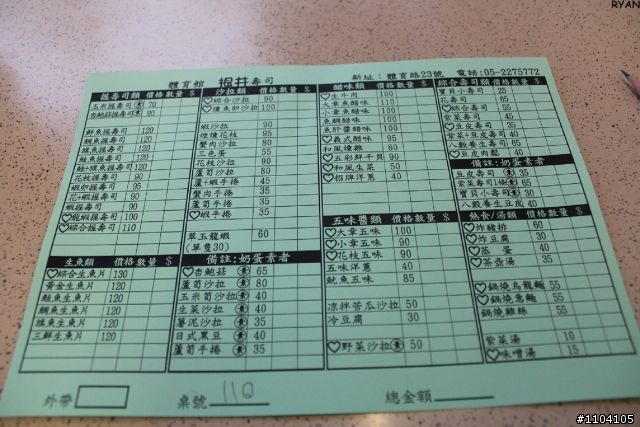 RYAN
體育館 根井壽司 新址：體育路23號 電話:05-2275772
握壽司類 價格 數量 $
玉米握壽司 素 70
杏鮑菇握壽司 素 90
鮮魚握壽司 120
鯛魚握壽司 120
旗魚握壽司 120
鮭魚握壽司 120
鮭+旗握壽司 120
花枝握壽司 90
蝦卵握壽司 95
花+蝦握壽司 90
♡龍蝦握壽司 100
♡綜合握壽司 110
沙拉類 價格 數量 $
♡綜合沙拉 90
♡燻魚卵沙拉 100
蝦沙拉 90
煙燻花枝 95
蟹肉沙拉 80
三色蛋 55
花枝沙拉 90
蘆筍沙拉 80
蘆+蝦手捲 40
蟹肉手捲 40
蘆筍手捲 35
♡蝦手捲 45
翠玉龍蝦 60
(單隻30)
醋味類 價格 數量 $
♡生牛肉 100
大章魚醋味 110
小章魚醋味 90
魚鯛醋味 100
魚肝醬醋味 100
♡義式醋味 95
和風燻雞 80
♡五彩鮮干貝 90
♡和風生菜 50
♡招牌洋蔥 40
綜合壽司類 價格 數量 $
寶貝小壽司 25
花壽司 65
♡綜合壽司 55
紫菜壽司 45
♡豆皮壽司 35
紫菜+豆皮壽司 40
八穀養生壽司 60
♡豆皮肉鬆 40
備註:奶蛋素者
豆皮壽司 素 35
寶貝小壽司 素 30
八穀養生豆皮 60
生魚類 價格 數量 $
♡綜合生魚片 130
黃金生魚片 120
鮭魚生魚片 120
鯛魚生魚片 120
旗魚生魚片 120
三鮮生魚片 120
備註:奶蛋素者
♡杏鮑菇 素 65
蘆筍沙拉 素 80
玉米筍沙拉 素 40
生菜沙拉 素 40
薯泥沙拉 素 35
日式黑豆 素 40
蘆筍手捲 素 35
五味醬類 價格 數量 $
♡大章五味 100
♡小章五味 90
♡花枝五味 90
五味洋蔥 40
魷魚五味 85
涼拌苦瓜沙拉 50
冷豆腐 30
♡野菜沙拉 素 50
熱食/湯類 價格 數量 $
♡炸豬排 60
♡炸豆腐 30
♡蒸蛋 40
♡茶壺湯 35
♡鍋燒烏龍麵 55
♡鍋燒意麵 55
鍋燒雞絲 55
紫菜湯 10
♡味噌湯 15
外帶 桌號 11Q 總金額
#1104105